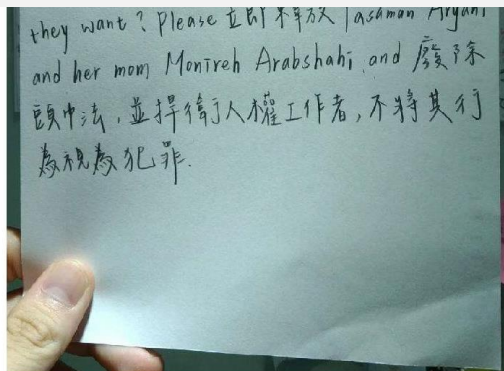 they want? Please 立即釋放 Yasaman Aryani
and her mom Monireh Arabshahi, and 廢除
頭巾法, 並捍衛人權工作者, 不將其行
為視為犯罪.